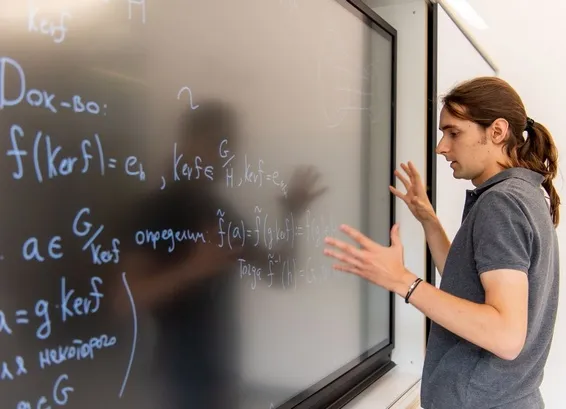 Kerf H
Док-во:
f(Kerf) = e_h, Kerf ∈ G/H, Kerf = e
a ∈ G/Kerf определим: f̃(a) = f̃(g·Kerf) = f(g)
Тогда f̃⁻¹(h) =
a = g·Kerf
некоторого
∈ G